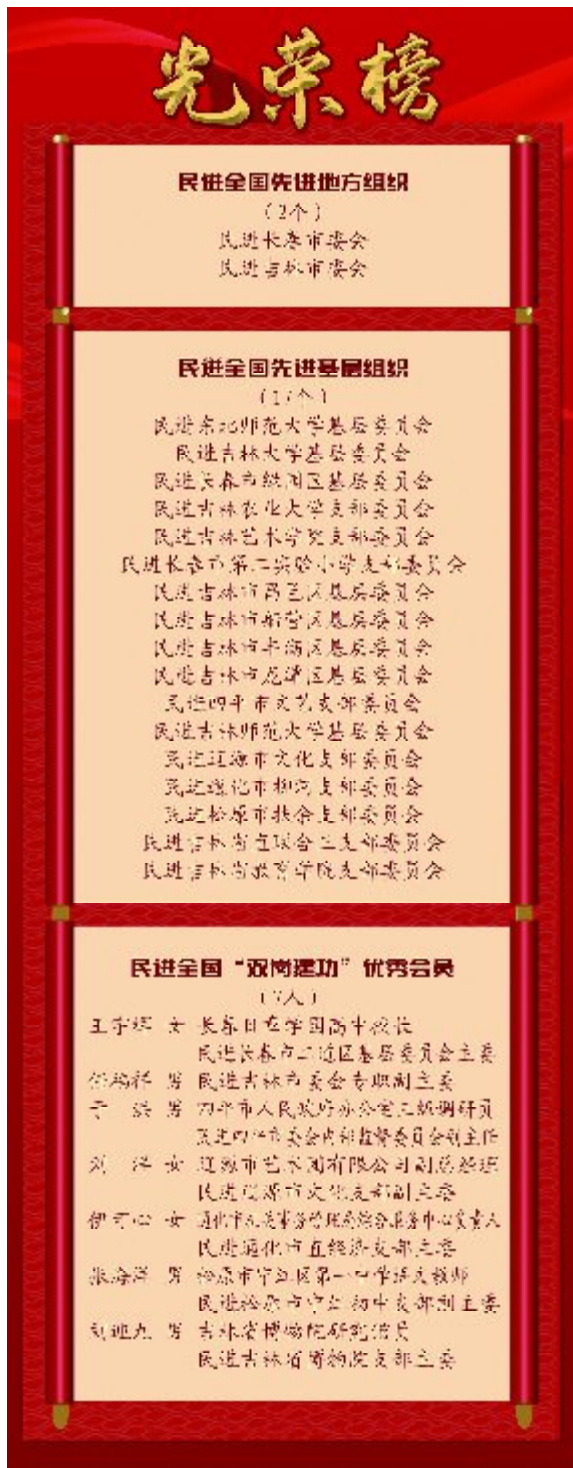 光荣榜
民进全国先进地方组织
（2个）
民进长春市委会
民进吉林市委会
民进全国先进基层组织
（17个）
民进东北师范大学基层委员会
民进吉林大学基层委员会
民进长春市绿园区基层委员会
民进吉林农业大学支部委员会
民进吉林艺术学院支部委员会
民进长春市第二实验小学支部委员会
民进吉林市昌邑区基层委员会
民进吉林市船营区基层委员会
民进吉林市丰满区基层委员会
民进吉林市龙潭区基层委员会
民进四平市文艺支部委员会
民进吉林师范大学基层委员会
民进辽源市文化支部委员会
民进通化市柳河支部委员会
民进松原市扶余支部委员会
民进吉林省直联合二支部委员会
民进吉林省教育学院支部委员会
民进全国“双岗建功”优秀会员
（7人）
王 女 长春日章学园高中校长
民进长春市二道区基层委员会主委
祥 男 民进吉林市委会专职副主委
于 洪 男 四平市人民政府办公室三级调研员
民进四平市委会内部监督委员会副主任
刘 洋 女 辽源市艺术团有限公司副总经理
民进辽源市文化支部副主委
伊可心 女 通化市机关事务管理局综合服务中心负责人
民进通化市直经济支部主委
张海洋 男 松原市宁江区第一中学语文教师
民进松原市宁江初中支部副主委
刘 男 吉林省博物院研究馆员
民进吉林省博物院支部主委